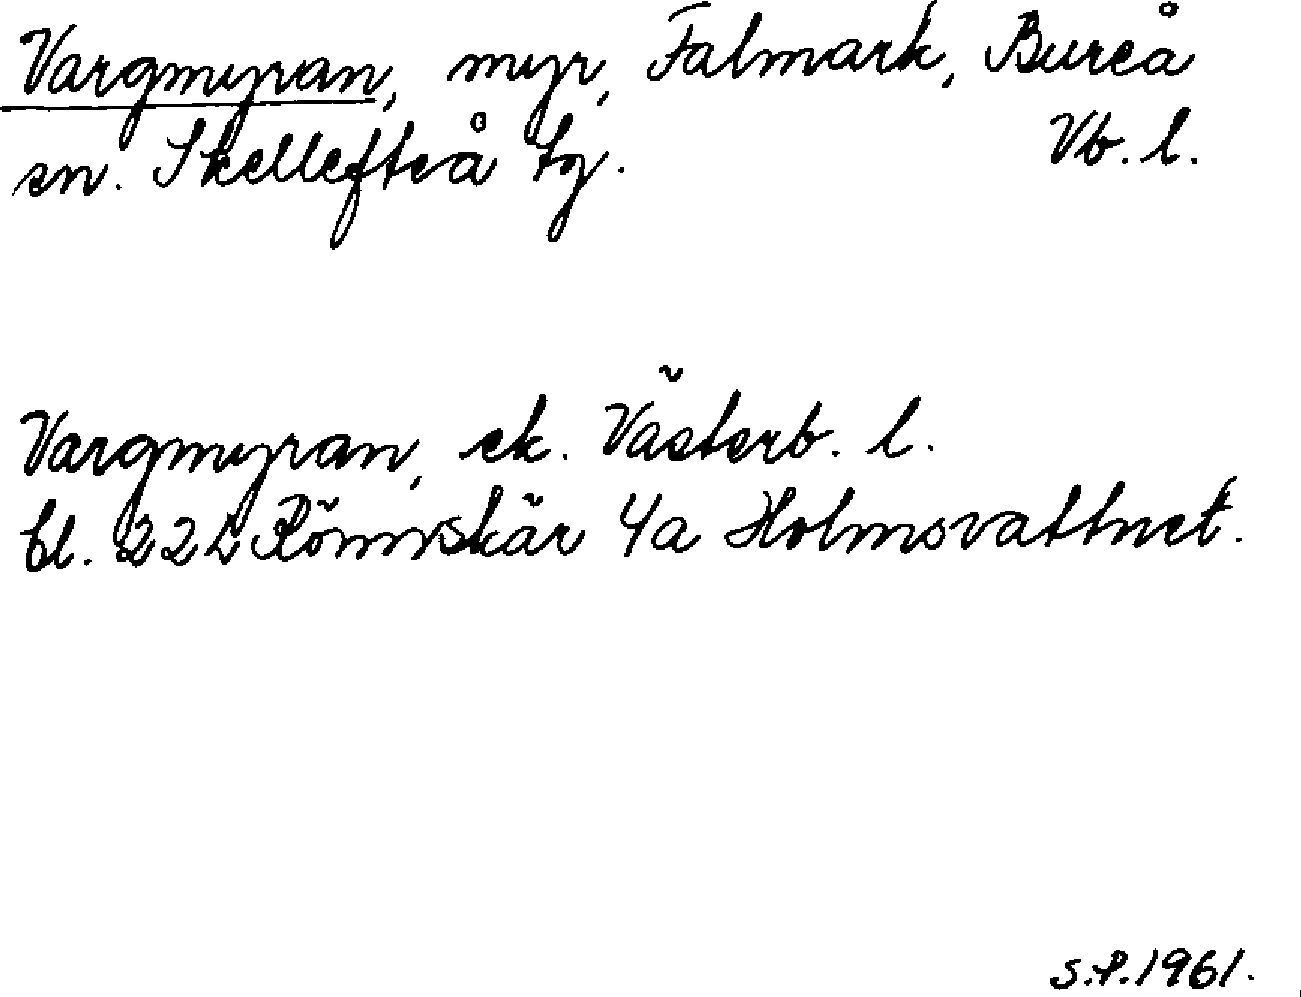 Vargmyran, myr, Falmark, Bureå
sn. Skellefteå tg. Vb. l.
Vargmyran, ek. Västerb. l.
bl. 22L Rönnskär 4a Holmsvattnet.
S.P.1961.